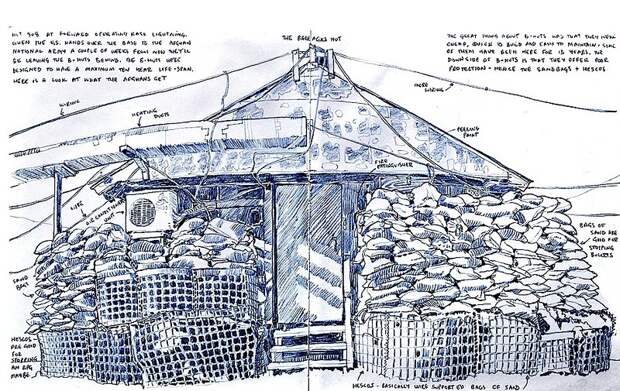 HUT 908 AT FORWARD OPERATING BASE LIGHTNING.
GIVEN THE U.S. HANDS OVER THE BASE TO THE AFGHAN
NATIONAL ARMY A COUPLE OF WEEKS FROM NOW THEY'LL
BE LEAVING THE B-HUTS BEHIND. THE B-HUTS WERE
DESIGNED TO HAVE A MAXIMUM TEN YEAR LIFE-SPAN.
HERE IS A LOOK AT WHAT THE AFGHANS GET
THE BARRACKS HUT
THE GREAT THING ABOUT B-HUTS WAS THAT THEY WERE
CHEAP, QUICK TO BUILD AND EASY TO MAINTAIN - SOME
OF THEM HAVE BEEN HERE FOR 13 YEARS. THE
DOWNSIDE OF B-HUTS IS THAT THEY OFFER POOR
PROTECTION - HENCE THE SANDBAGS + HESCOS
MORE WIRING
WIRING
HEATING DUCTS
PEELING PAINT
FIRE EXTINGUISHER
WIRE
AIR CONDITIONING UNIT
BAGS OF
SAND ARE
GOOD FOR
STOPPING
BULLETS
SAND
BAGS
HESCOS
ARE GOOD
FOR
STOPPING
AN RPG
MAYBE
HESCOS - BASICALLY WIRE SUPPORTED BAGS OF SAND